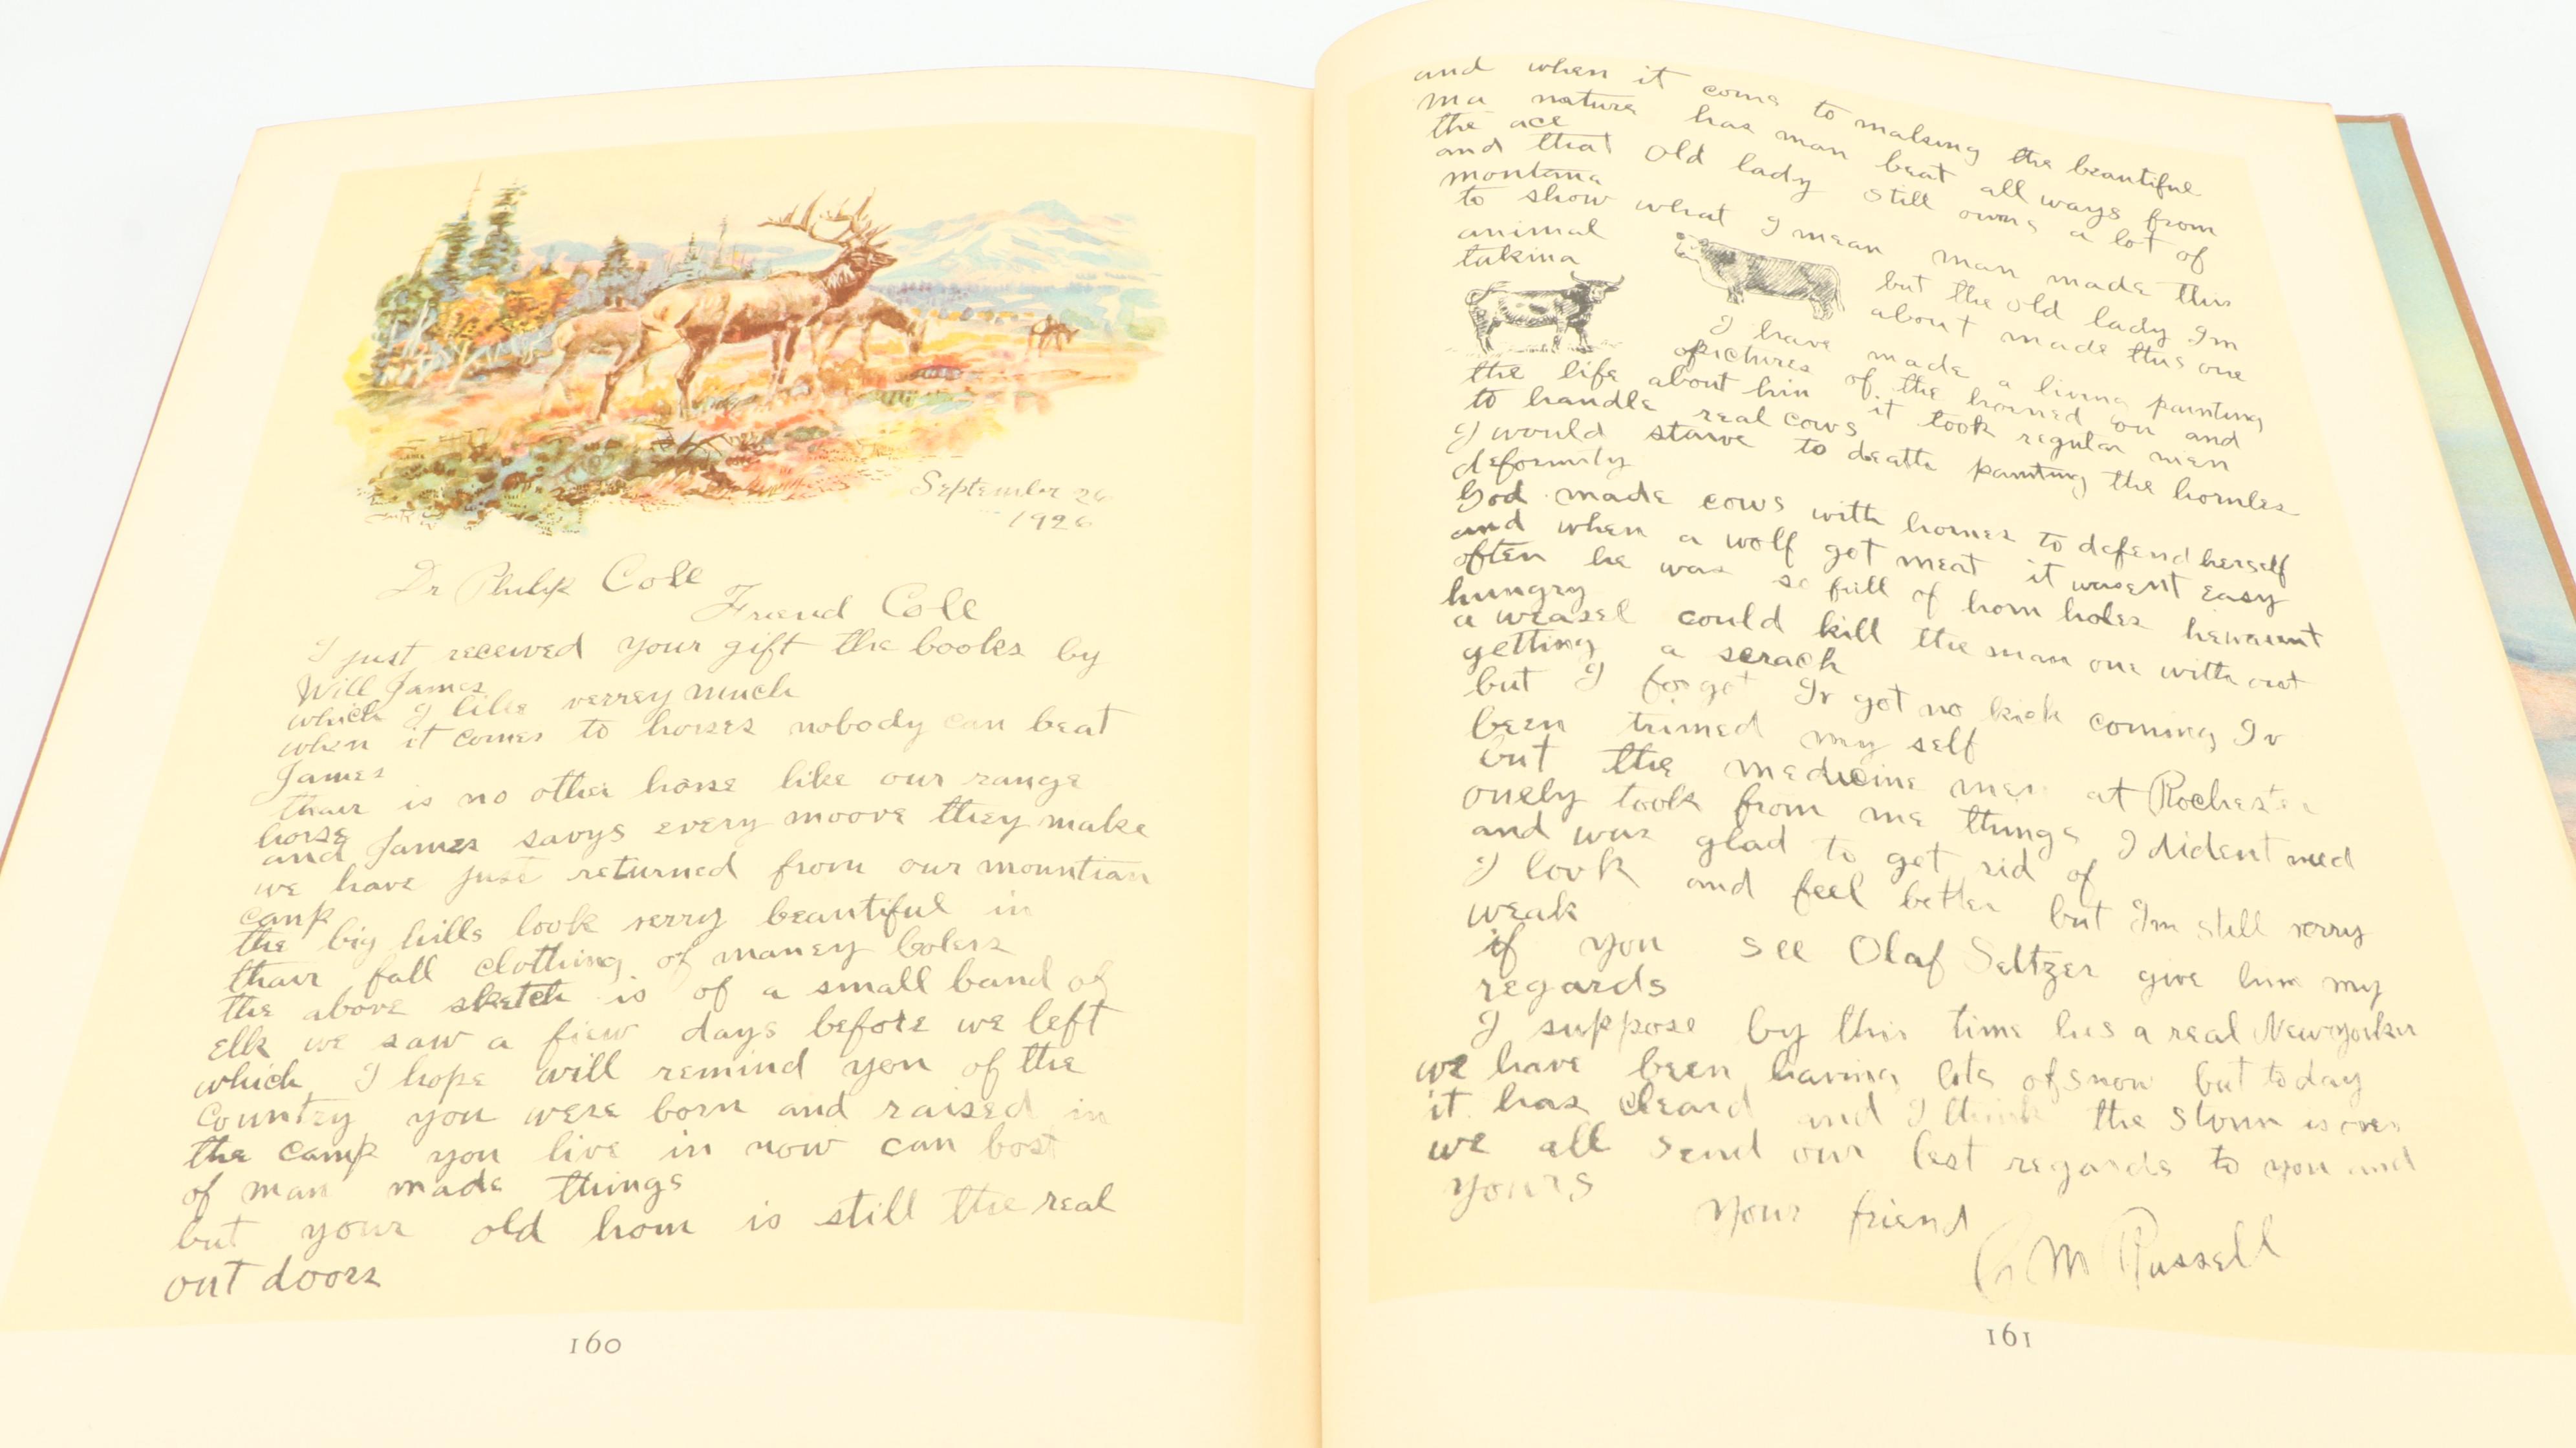 September 26
1926
Dr Philip Cole
Friend Cole
I just received your gift the books by
Will James
which I like verrey much
when it comes to horses nobody can beat
James
thair is no other horse like our range
horse
and James savys every moove they make
we have just returned from our mountian
camp
the big hills look verry beautiful in
thair fall clothing of maney colers
the above sketch is of a small band of
elk we saw a fiew days before we left
which I hope will remind you of the
Country you were born and raised in
the camp you live in now can bost
of man made things
but your old hom is still the real
out doors
160
and when it coms to making the beautiful
ma nature has man beat all ways from
the ace
and that old lady still owns a lot of
montana
to show what I mean man made this
animal
but the old lady Im
taking about made this one
I have made a living painting
pictures of the horned on and
the life about him it took regular men
to handle real cows
I would starve to death painting the hornles
deformity
God made cows with hornes to defend herself
and when a wolf got meat it wasent easy
often he was so full of horn holes he wasunt
hungry
a weasel could kill the man one with out
getting a scrach
but I forget Iv got no kick coming Iv
been trimed my self
but the medicine men at Rochester
onely took from me things I dident need
and was glad to get rid of
I look and feel better but Im still verry
weak
if you see Olaf Seltzer give him my
regards
I suppose by this time hes a real New yorker
we have been having lots of snow but today
it has cleard and I think the storm is over
we all send our best regards to you and
yours
Your friend
C M Russell
161